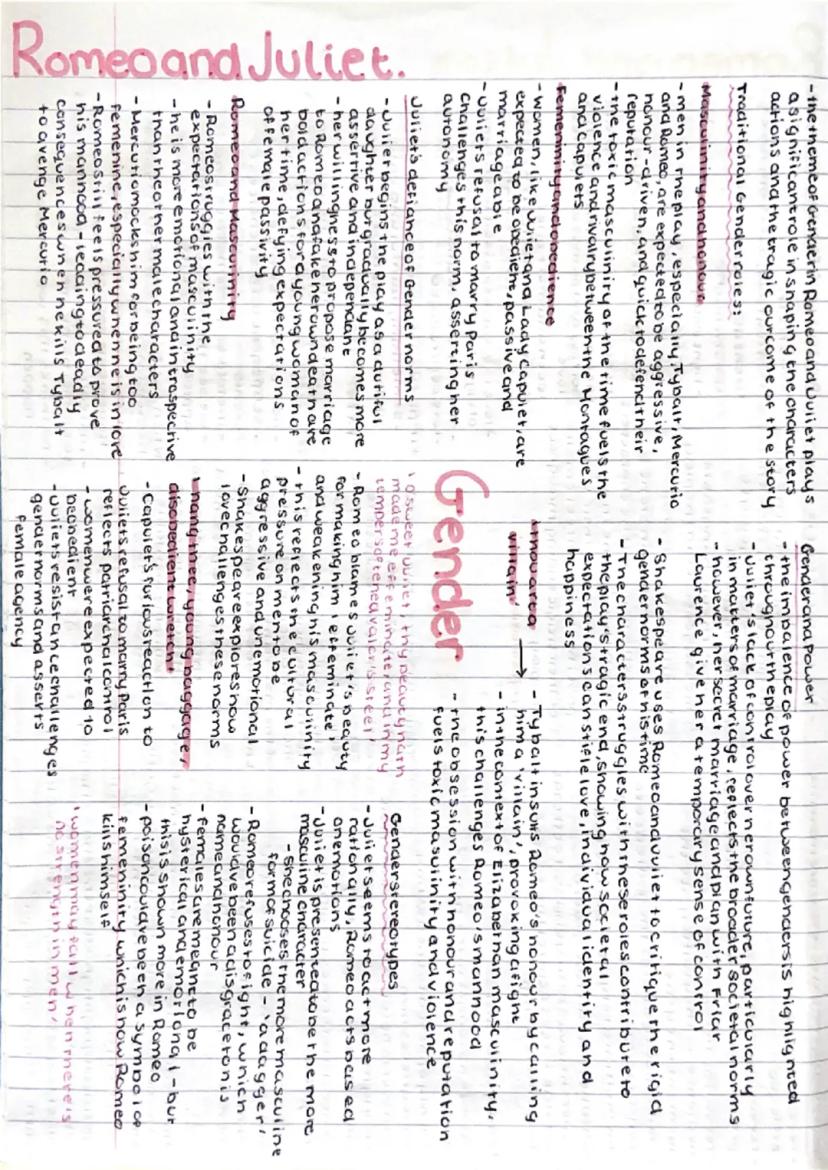 Romeo and Juliet.
- the theme of Gender in Romeo and Juliet plays
a significant role in shaping the characters
actions and the tragic outcome of the story
Traditional Gender roles:
Masculinity and honour
- men in the play, especially, Tybalt, Mercutio
and Romeo, are expected to be aggressive,
honour-driven, and quick to defend their
reputation
- the toxic masculinity of the time fuels the
violence and rivalry between the Montagues
and Capulets
Femininity and obedience
- women, like Juliet and Lady Capulet, are
expected to be obedient, passive and
marriageable
- Juliet's refusal to marry Paris
challenges this norm, asserting her
autonomy
Juliet's defiance of Gender norms
- Juliet begins the play as a dutiful
daughter but gradually becomes more
assertive and independant
- her willingness to propose marriage
to Romeo and fake her own death are
bold actions for a young woman of
her time, defying expectations
of female passivity
Romeo and Masculinity
- Romeo struggles with the
expectations of masculinity
- he is more emotional and introspective
than the other male characters
- Mercutio mocks him for being too
femenine, especially when he is in love
- Romeo still feels pressured to prove
his manhood - leading to deadly
consequences when he kills Tybalt
to avenge Mercutio
Gender
Gender and Power
- the imbalence of power between genders is highlighted
throughout the play
- Juliet's lack of control over her own future, particularly
in matters of marriage, reflects the broader societal norms
- however, her secret marriage and plan with Friar
Lawrence give her a temporary sense of control
- Shakespeare uses Romeo and Juliet to critique the rigid
gender norms of his time
- The characters struggles with these roles contribute to
the play's tragic end, showing how societal
expectations can stifle love, individual identity and
happiness
'thou art a
villain' →
- Tybalt insults Romeo's honour by calling
him a 'villain', provoking a fight
- in the context of Elizabethan masculinity,
this challenges Romeo's manhood
- the obsession with honour and reputation
fuels toxic masculinity and violence
'o sweet Juliet, thy beauty hath
made me effeminate, and in my
temper softened valor's steel'
- Romeo blames Juliet's beauty
for making him 'effeminate'
and weakening his masculinity
- this reflects the cultural
pressure on men to be
aggressive and unemotional
- Shakespeare explores how
love challenges these norms
'hang thee, young baggage,
disobedient wretch'
- Capulet's furious reaction to
Juliet's refusal to marry Paris
reflects patriarchal control
- women were expected to
be obedient
- Juliet's resistance challenges
gender norms and asserts
female agency
Gender stereotypes
- Juliet seems to act more
rationally, Romeo acts based
on emotions
- Juliet is presented to be the more
masculine character
- She chooses the more masculine
form of suicide - 'a dagger'
- Romeo refuses to fight, which
would've been a disgrace to his
name and honour
- females are meant to be
hysterical and emotional - but
this is shown more in Romeo
- poison could've been a symbol of
femeninity which is how Romeo
kills himself
'women may fall when there's
no strength in men'